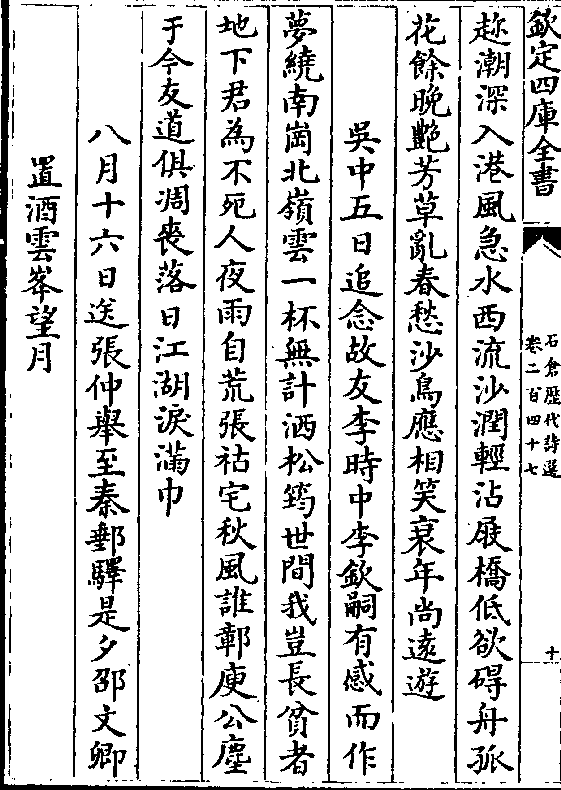 欽定四庫全書
石倉歴代詩選
卷二百四十七
十
趂潮深入港風急水西流沙潤輕沾屐橋低欲碍舟孤
花餘晚艶芳草亂春愁沙鳥應相笑衰年尚遠遊
吳中五日追念故友李時中李欽嗣有感而作
夢繞南崗北嶺雲一杯無計洒松筠世間我豈長貧者
地下君為不死人夜雨自荒張祜宅秋風誰鄣庾公塵
于今友道俱凋喪落日江湖淚滿巾
八月十六日送張仲舉至秦郵驛是夕邵文卿
置酒雲峯望月